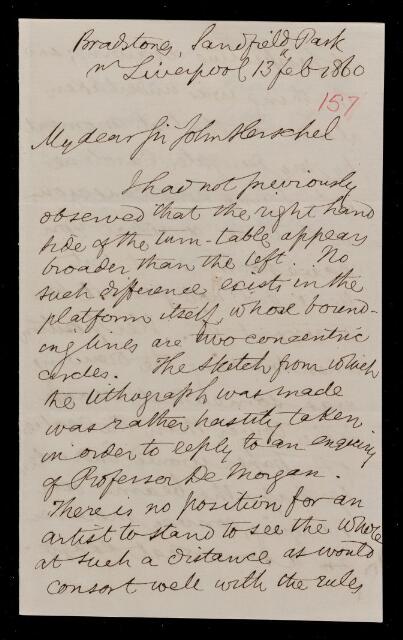 Bradstones, Sandfield Park
nr Liverpool 13th feb 1860
157
My dear Sir John Herschel
I had not previously
observed that the right hand
side of the turn-table appears
broader than the left. No
such difference exists in the
platform itself, whose bound-
ing lines are two concentric
circles. The sketch from which
the lithograph was made
was rather hastily taken
in order to reply to an enquiry
of Professor De Morgan.
There is no position for an
artist to stand to see the whole
at such a distance as would
consort well with the rules